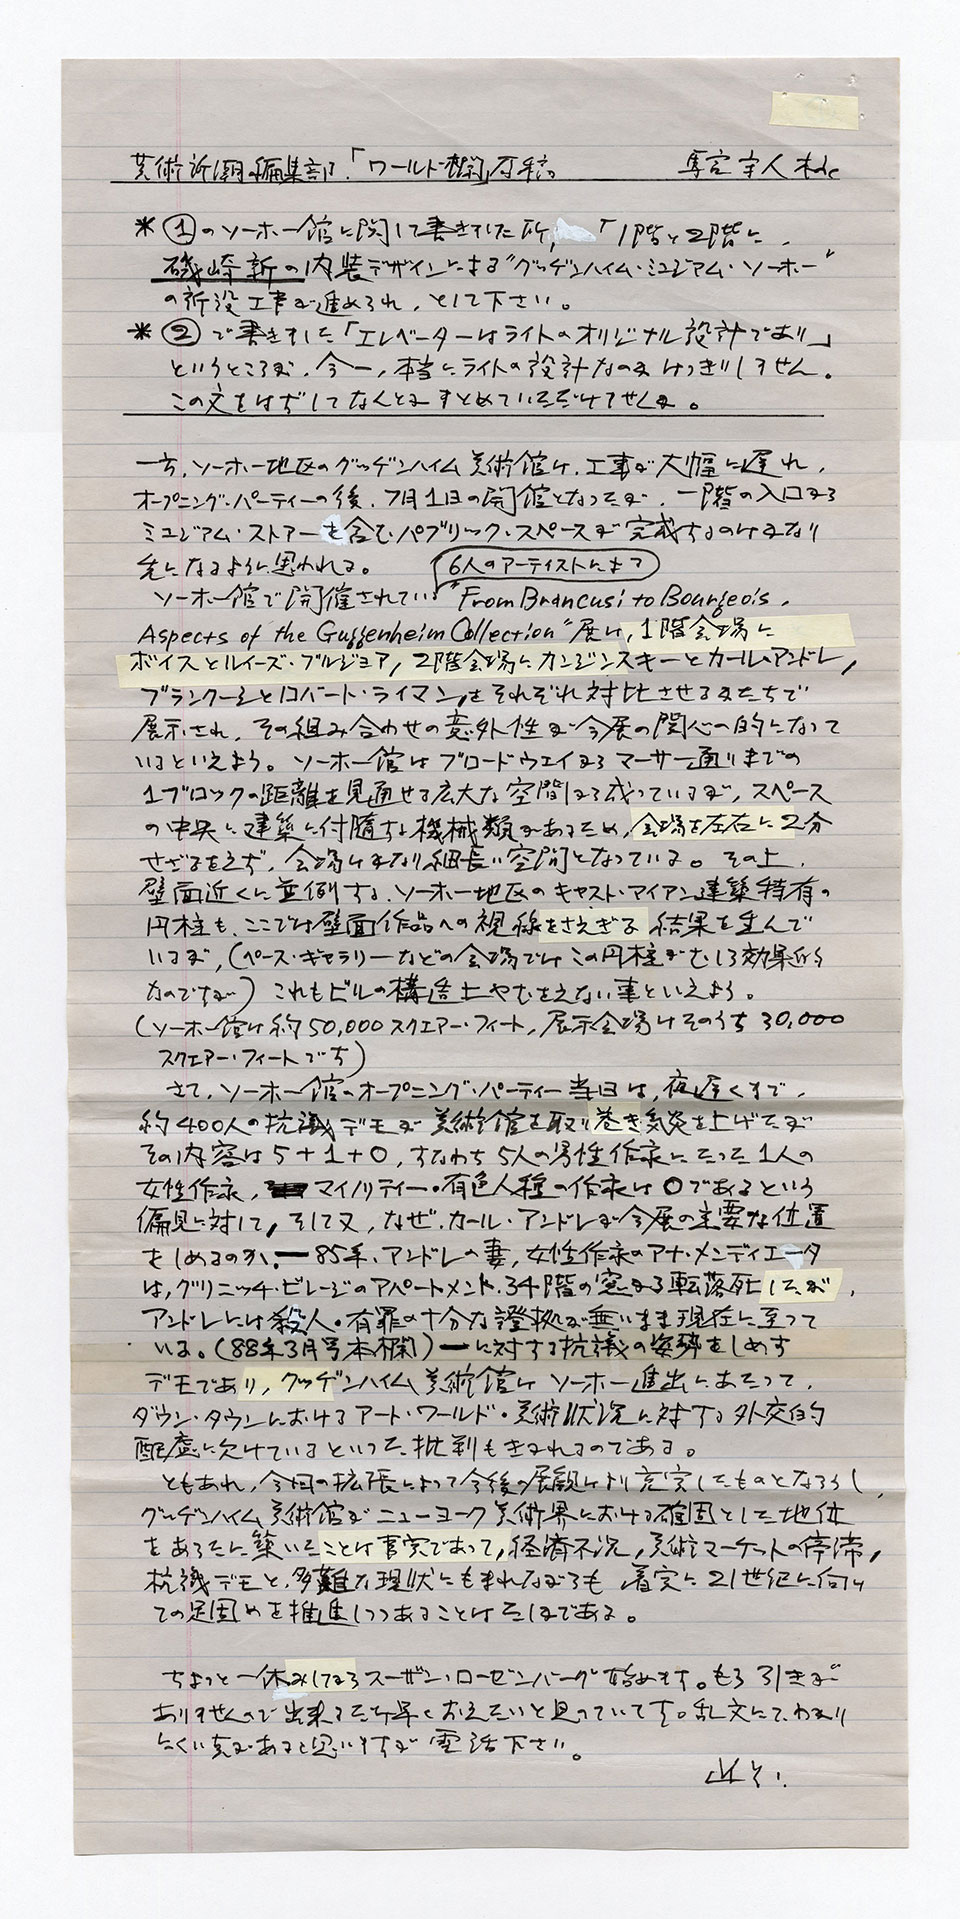 芸術新潮編集部「ワールド欄」原稿
*①のソーホー館に関して書きました所、「1階と2階に、
磯崎新の内装デザインによる"グッゲンハイム・ミュジアム・ソーホー"
の新設工事が進められ、として下さい。
*②で書きました「エレベーターはライトのオリジナル設計であり」
というところが、今一、本当にライトの設計なのかはっきりしません。
この文をはずしてなんとかまとめていただけませんか。
一方、ソーホー地区のグッゲンハイム美術館は、工事が大幅に遅れ、
オープニング・パーティーの後、7月1日の開館となったが、一階の入口から
ミュジアム・ストアーを含むパブリック・スペースが完成するのはかなり
先になるように思われる。
6人のアーティストによる
ソーホー館で開催されている"From Brancusi to Bourgeois,
Aspects of the Guggenheim Collection"展は、1階会場に
ボイスとルイーズ・ブルジョア、2階会場にカンジンスキーとカール・アンドレ、
ブランクーシとロバート・ライマンをそれぞれ対比させるかたちで
展示され、その組み合わせの意外性が今展の関心の的になって
いるといえよう。ソーホー館はブロードウエイからマーサー通りまでの
1ブロックの距離を見通せる広大な空間から成っているが、スペース
の中央に建築に付随する機械類があるため、会場を左右に2分
せざるをえず、会場はかなり細長い空間となっている。その上、
壁面近くに並例する、ソーホー地区のキャスト・アイアン建築特有の
円柱も、ここでは壁面作品への視線をさえぎる結果を生んで
いるが、(ペース・ギャラリーなどの会場ではこの円柱がむしろ効果的
なのですが)これもビルの構造上やむをえない事といえよう。
(ソーホー館は約50,000スクエアー・フィート、展示会場はそのうち30,000
スクエアー・フィートです)
さて、ソーホー館のオープニング・パーティー当日は、夜遅くまで、
約400人の抗議デモが美術館を取り巻き気炎を上げたが
その内容は5+1+0、すなわち5人の男性作家にたった1人の
女性作家、マイノリティー・有色人種の作家は0であるという
偏見に対して、そして又、なぜ、カール・アンドレが今展の主要な位置
をしめるのか、ー85年、アンドレの妻、女性作家のアナ・メンディエータ
は、グリニッチ・ビレージのアパートメント、34階の窓から転落死したが、
アンドレには殺人・有罪の十分な證拠が無いまま現在に至って
いる。(88年3月号本欄)ーに対する抗議の姿勢をしめす
デモであり、グッゲンハイム美術館はソーホー進出にあたって、
ダウン・タウンにおけるアート・ワールド・美術状況に対する外交的
配慮に欠けているといった批判もきかれるのである。
ともあれ、今回の拡張によって今後の展観はより充実したものとなろうし、
グッゲンハイム美術館がニューヨーク美術界における確固とした地位
をあらたに築いたことは事実であって、経済不況、美術マーケットの停滞、
抗議デモと、多難な現状にもまれながらも着実に21世紀に向け
ての足固めを推進しつつあることはたしかである。
ちょっと一休みしてからスーザン・ローゼンバーグ始めます。もう引きが
ありませんので出来るだけ早くおえたいと思っています。乱文にて、わかり
にくい点があると思いますが電話下さい。